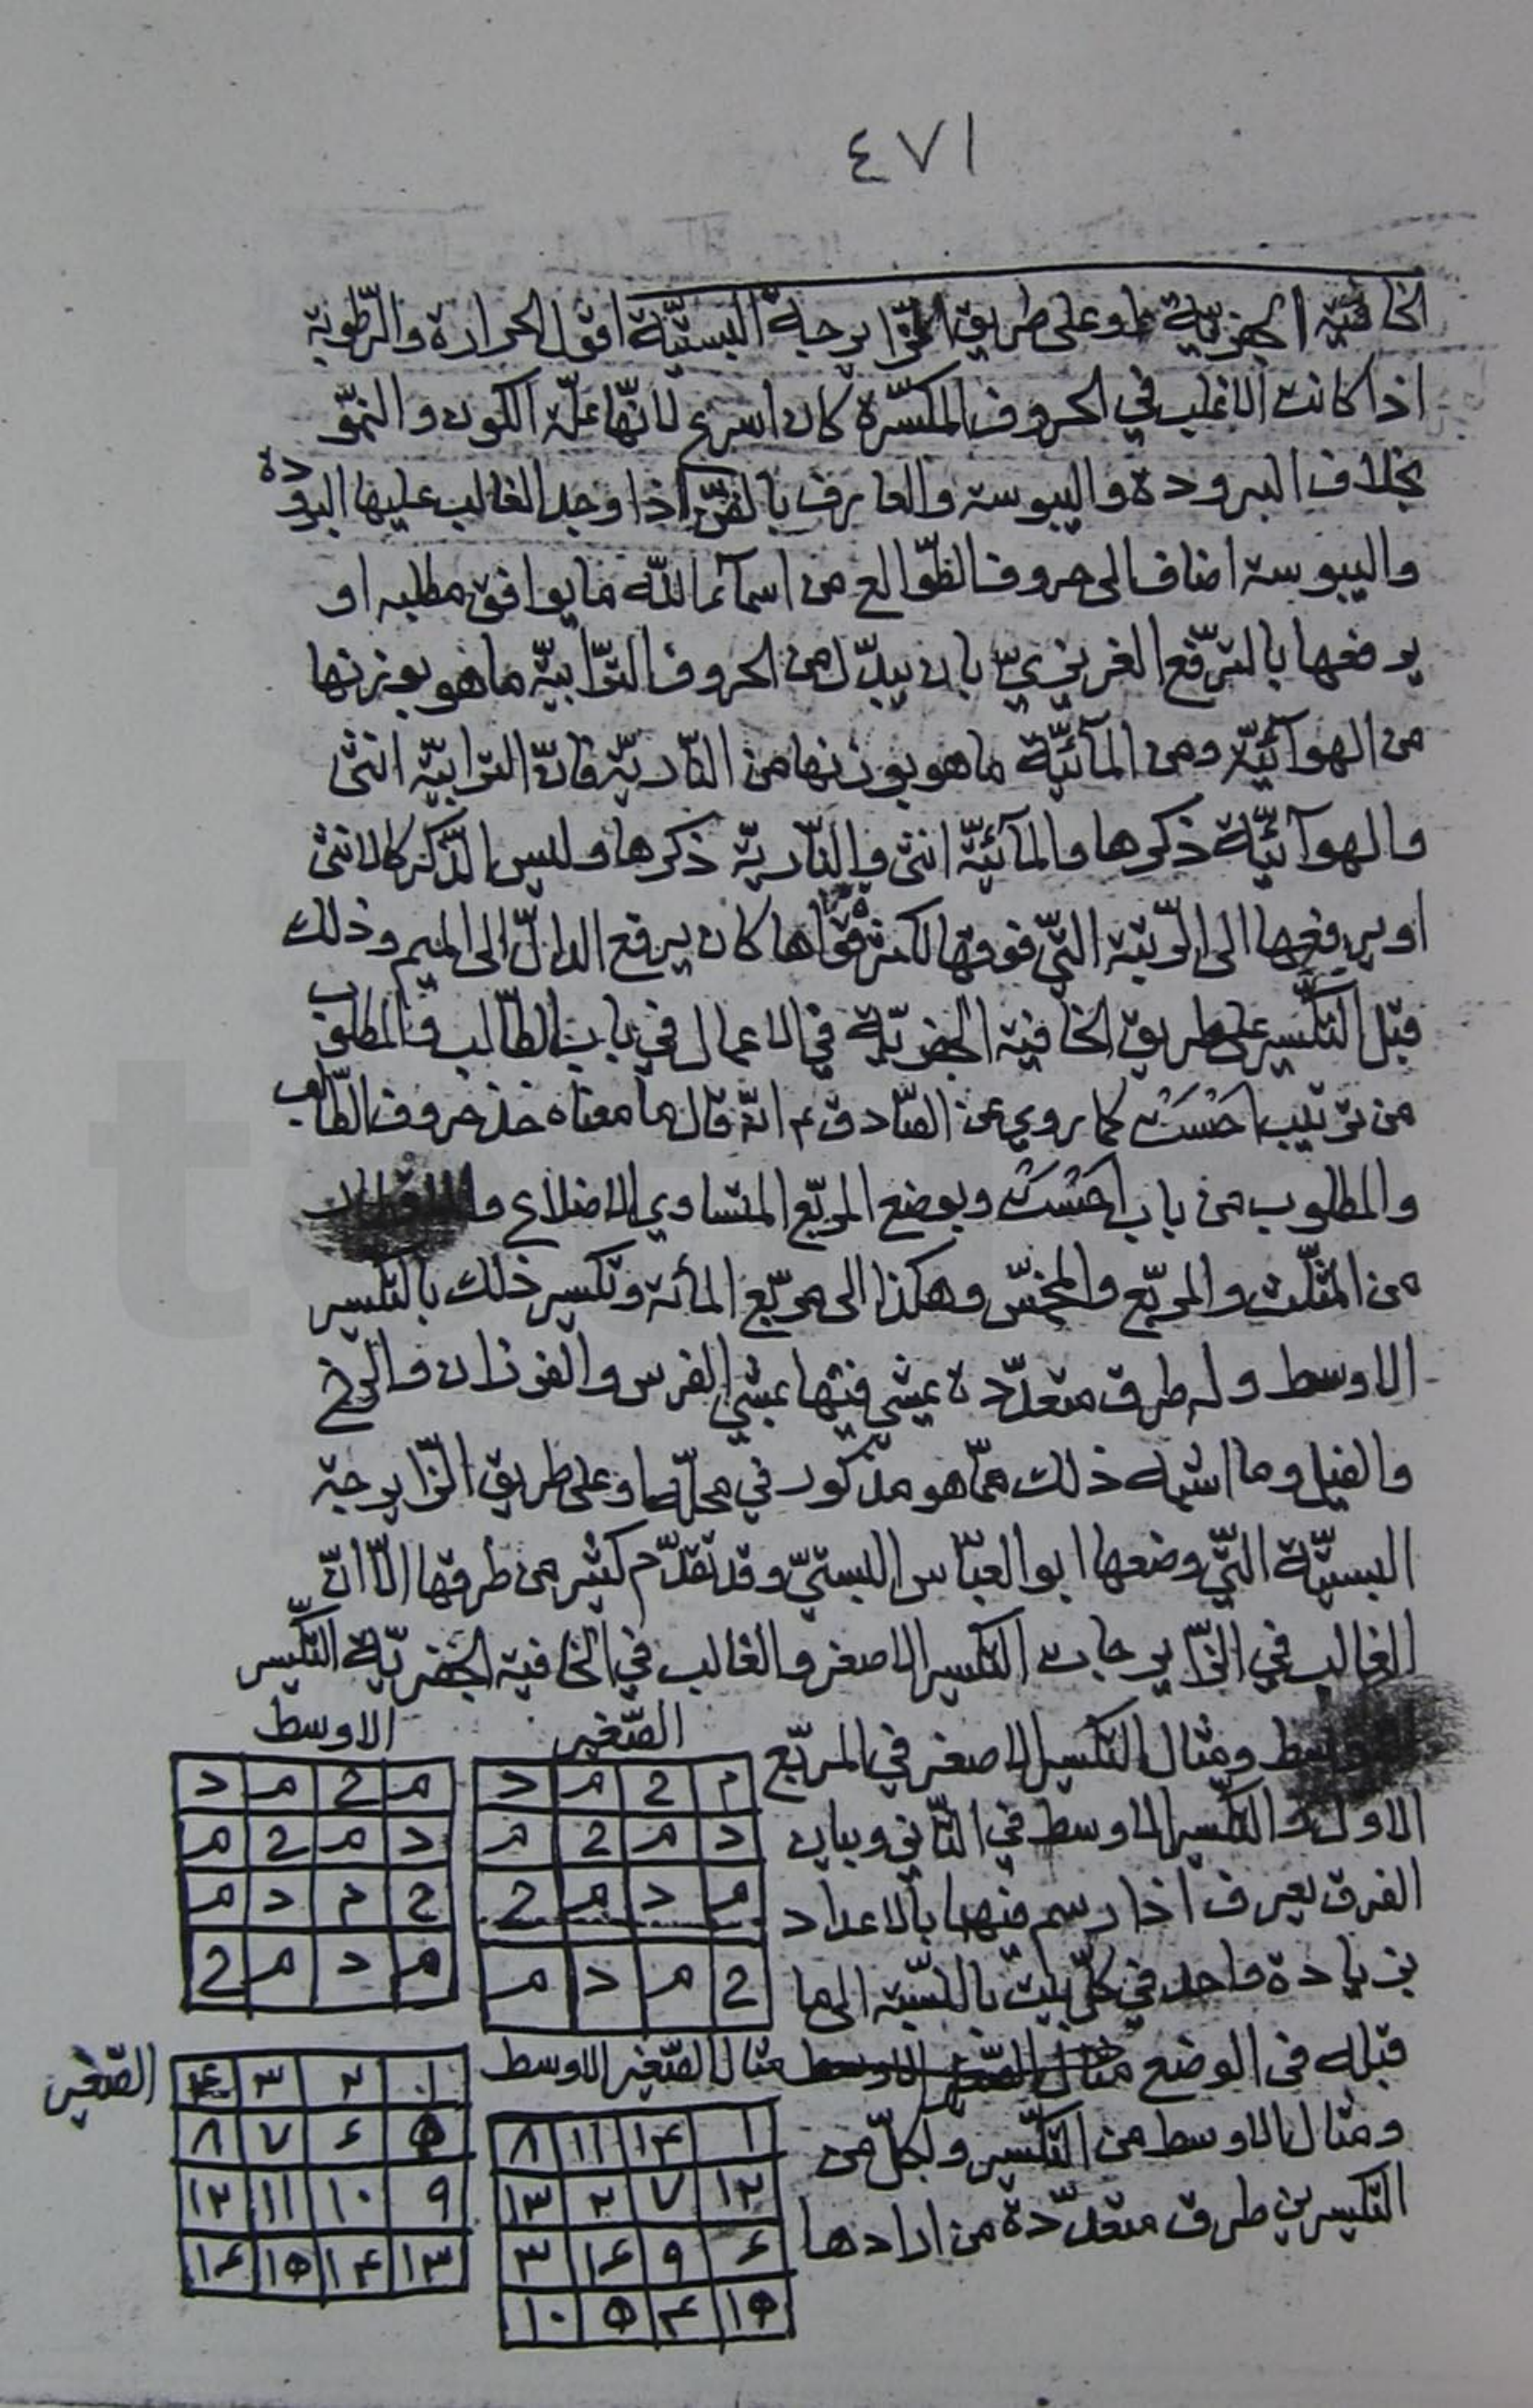 ٤٧١
الخافية الجفرية او على طريق الزايرجة البستيّة اقول الحرارة والرّطوبة
اذا كانت الاغلب في الحروف المكسّرة كان اسرع لانّها علّة الكون والنموّ
بخلاف البرودة واليبوسة والعارف بالفنّ اذا وجد الغالب عليها البرودة
واليبوسة اضاف الى حروف الطّوالع من اسمآء اللّه ما يوافق مطلبه او
يرفعها بالترّفع الغريزيّ بان يبدّل من الحروف التّرابيّة ما هو بوزنها
من الهوآئيّة ومن المآئيّة ما هو بوزنها من النّاريّة فانّ الترابيّة انثى
والهوآئيّة ذكرها والمآئيّة انثى والنّاريّة ذكرها وليس الذّكر كالانثى
او يرفعها الى الرّتبة الّتي فوقها لكثرة قواها كان يرفع الدال الى الميم وذلك
قبل التكسير على طريق الخافية الجفريّة في الاعمال في باب الطّالب والمطلوب
من ترتيب احست كما روي عن الصّادق ع انّه قال ما معناه خذ حروف الطّالب
والمطلوب من باب احست وبوضع المربّع المتساوي الاضلاع و
من المثلّث والمربّع والمخمّس وهكذا الى مربّع المائة وتكسير ذلك بالتكسير
الاوسط وله طرق متعدّدة يمشي فيها بمشي الفرس والفرزان والرخ
والفيل وما اشبه ذلك ممّا هو مذكور في محلّه او على طريق الزّايرجة
البستيّة الّتي وضعها ابو العبّاس البستيّ وقد تقدّم كثير من طرقها الّا انّ
الغالب في الزّايرجات التكسير الاصغر والغالب في الخافية الجفريّة التّكسير
الاوسط ومثال التكسير الاصغر في المربّع
الاول والتكسير الاوسط في الثّاني وبيان
الفرق يعرف اذا رسم فيها بالاعداد
بزيادة واحد في كلّ بيت بالنّسبة الى ما
قبله في الوضع مثال الصّغير الاوسط
ومثال الاوسط من التكسير ولكلّ من
التكسيرين طرق متعدّدة من ارادها
الصّغير
م ح م د
د م ح م
م د م ح
ح م د م
الاوسط
م ح م د
د م ح م
ح م د م
م د م ح
مثال الصّغير الاوسط
١ ١۴ ١١ ٨
١٢ ٧ ٢ ١٣
۶ ٩ ١۶ ٣
١٥ ۴ ٥ ١٠
الصّغير
١ ٢ ٣ ۴
٥ ۶ ٧ ٨
٩ ١٠ ١١ ١٢
١٣ ١۴ ١٥ ١۶